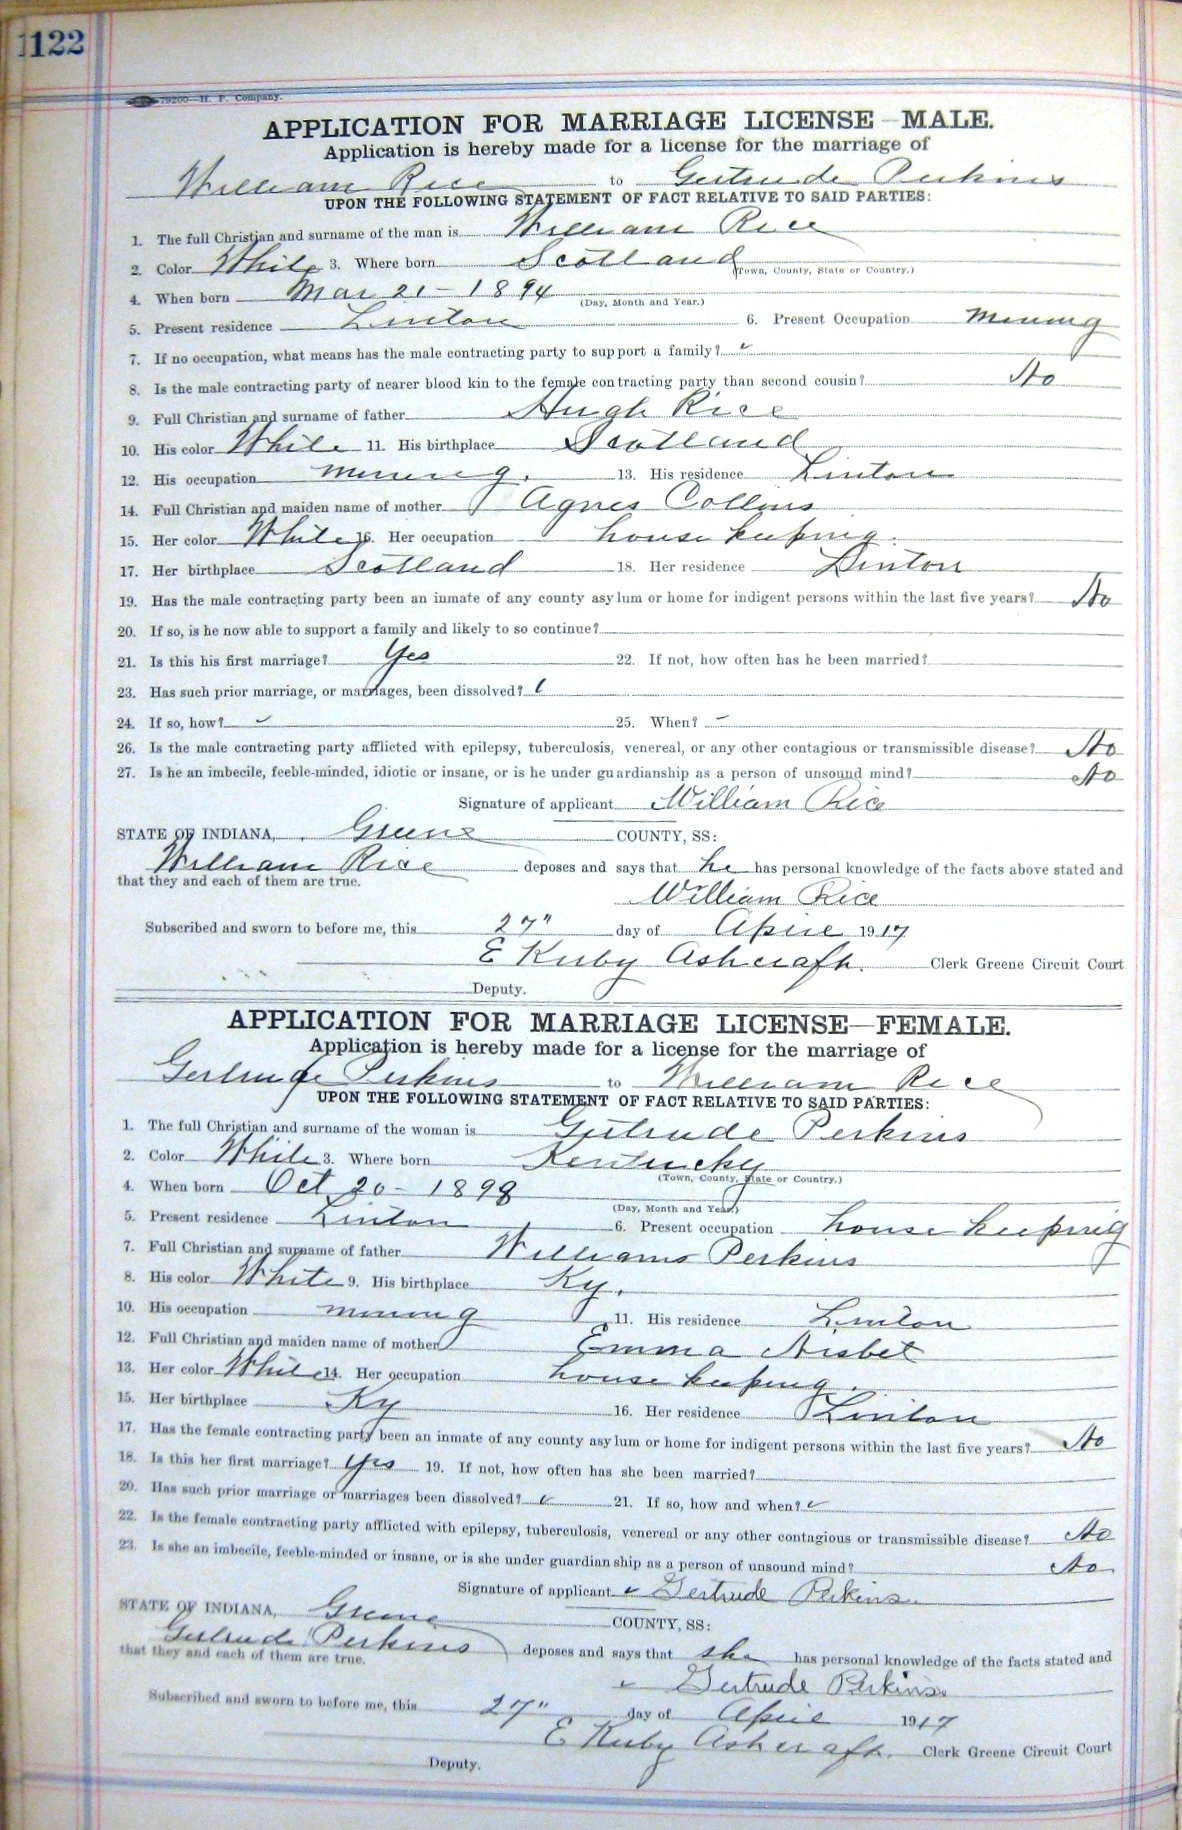 1122
79200—H. P. Company.
APPLICATION FOR MARRIAGE LICENSE—MALE.
Application is hereby made for a license for the marriage of
William Rice to Gertrude Perkins
UPON THE FOLLOWING STATEMENT OF FACT RELATIVE TO SAID PARTIES:
1. The full Christian and surname of the man is William Rice
2. Color White 3. Where born Scotland
(Town, County, State or Country.)
4. When born Mar 21 - 1894
(Day, Month and Year.)
5. Present residence Linton 6. Present Occupation Mining
7. If no occupation, what means has the male contracting party to support a family? ✓
8. Is the male contracting party of nearer blood kin to the female contracting party than second cousin? No
9. Full Christian and surname of father Hugh Rice
10. His color White 11. His birthplace Scotland
12. His occupation mining. 13. His residence Linton
14. Full Christian and maiden name of mother Agnes Collins
15. Her color White 16. Her occupation house keeping.
17. Her birthplace Scotland 18. Her residence Linton
19. Has the male contracting party been an inmate of any county asylum or home for indigent persons within the last five years? No
20. If so, is he now able to support a family and likely to so continue?
21. Is this his first marriage? Yes 22. If not, how often has he been married?
23. Has such prior marriage, or marriages, been dissolved? ✓
24. If so, how? ✓ 25. When? ✓
26. Is the male contracting party afflicted with epilepsy, tuberculosis, venereal, or any other contagious or transmissible disease? No
27. Is he an imbecile, feeble-minded, idiotic or insane, or is he under guardianship as a person of unsound mind? No
Signature of applicant William Rice
STATE OF INDIANA, Greene COUNTY, SS:
William Rice deposes and says that he has personal knowledge of the facts above stated and
that they and each of them are true.
William Rice
Subscribed and sworn to before me, this 27" day of April 1917
E Kirby Ashcraft. Clerk Greene Circuit Court
Deputy.
APPLICATION FOR MARRIAGE LICENSE—FEMALE.
Application is hereby made for a license for the marriage of
Gertrude Perkins to William Rice
UPON THE FOLLOWING STATEMENT OF FACT RELATIVE TO SAID PARTIES:
1. The full Christian and surname of the woman is Gertrude Perkins
2. Color White 3. Where born Kentucky
(Town, County, State or Country.)
4. When born Oct 20 - 1898
(Day, Month and Year.)
5. Present residence Linton 6. Present occupation house keeping
7. Full Christian and surname of father Williams Perkins
8. His color White 9. His birthplace Ky.
10. His occupation mining 11. His residence Linton
12. Full Christian and maiden name of mother Emma Nisbet
13. Her color White 14. Her occupation house keeping.
15. Her birthplace Ky 16. Her residence Linton
17. Has the female contracting party been an inmate of any county asylum or home for indigent persons within the last five years? No
18. Is this her first marriage? Yes 19. If not, how often has she been married?
20. Has such prior marriage or marriages been dissolved? ✓ 21. If so, how and when? ✓
22. Is the female contracting party afflicted with epilepsy, tuberculosis, venereal or any other contagious or transmissible disease? No
23. Is she an imbecile, feeble-minded or insane, or is she under guardianship as a person of unsound mind? No
Signature of applicant ✓ Gertrude Perkins
STATE OF INDIANA, Greene COUNTY, SS:
Gertrude Perkins deposes and says that she has personal knowledge of the facts stated and
that they and each of them are true.
✓ Gertrude Perkins
Subscribed and sworn to before me, this 27" day of April 1917
E Kirby Ashcraft. Clerk Greene Circuit Court
Deputy.